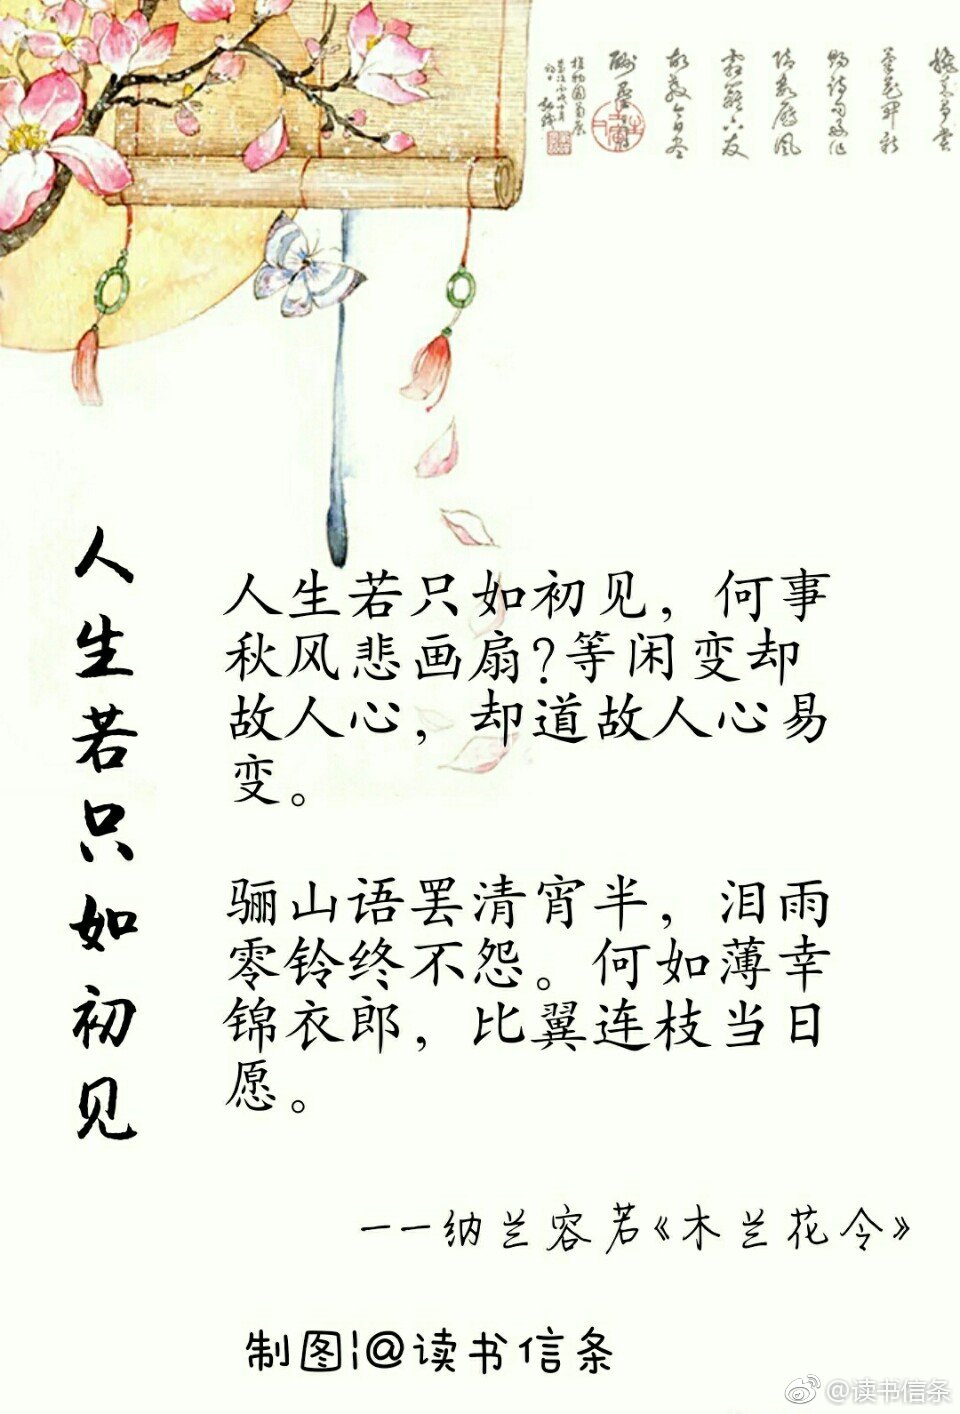 人生若只如初见
人生若只如初见，何事
秋风悲画扇?等闲变却
故人心，却道故人心易
变。
骊山语罢清宵半，泪雨
零铃终不怨。何如薄幸
锦衣郎，比翼连枝当日
愿。
一一纳兰容若《木兰花令》
制图|@读书信条
@读书信条